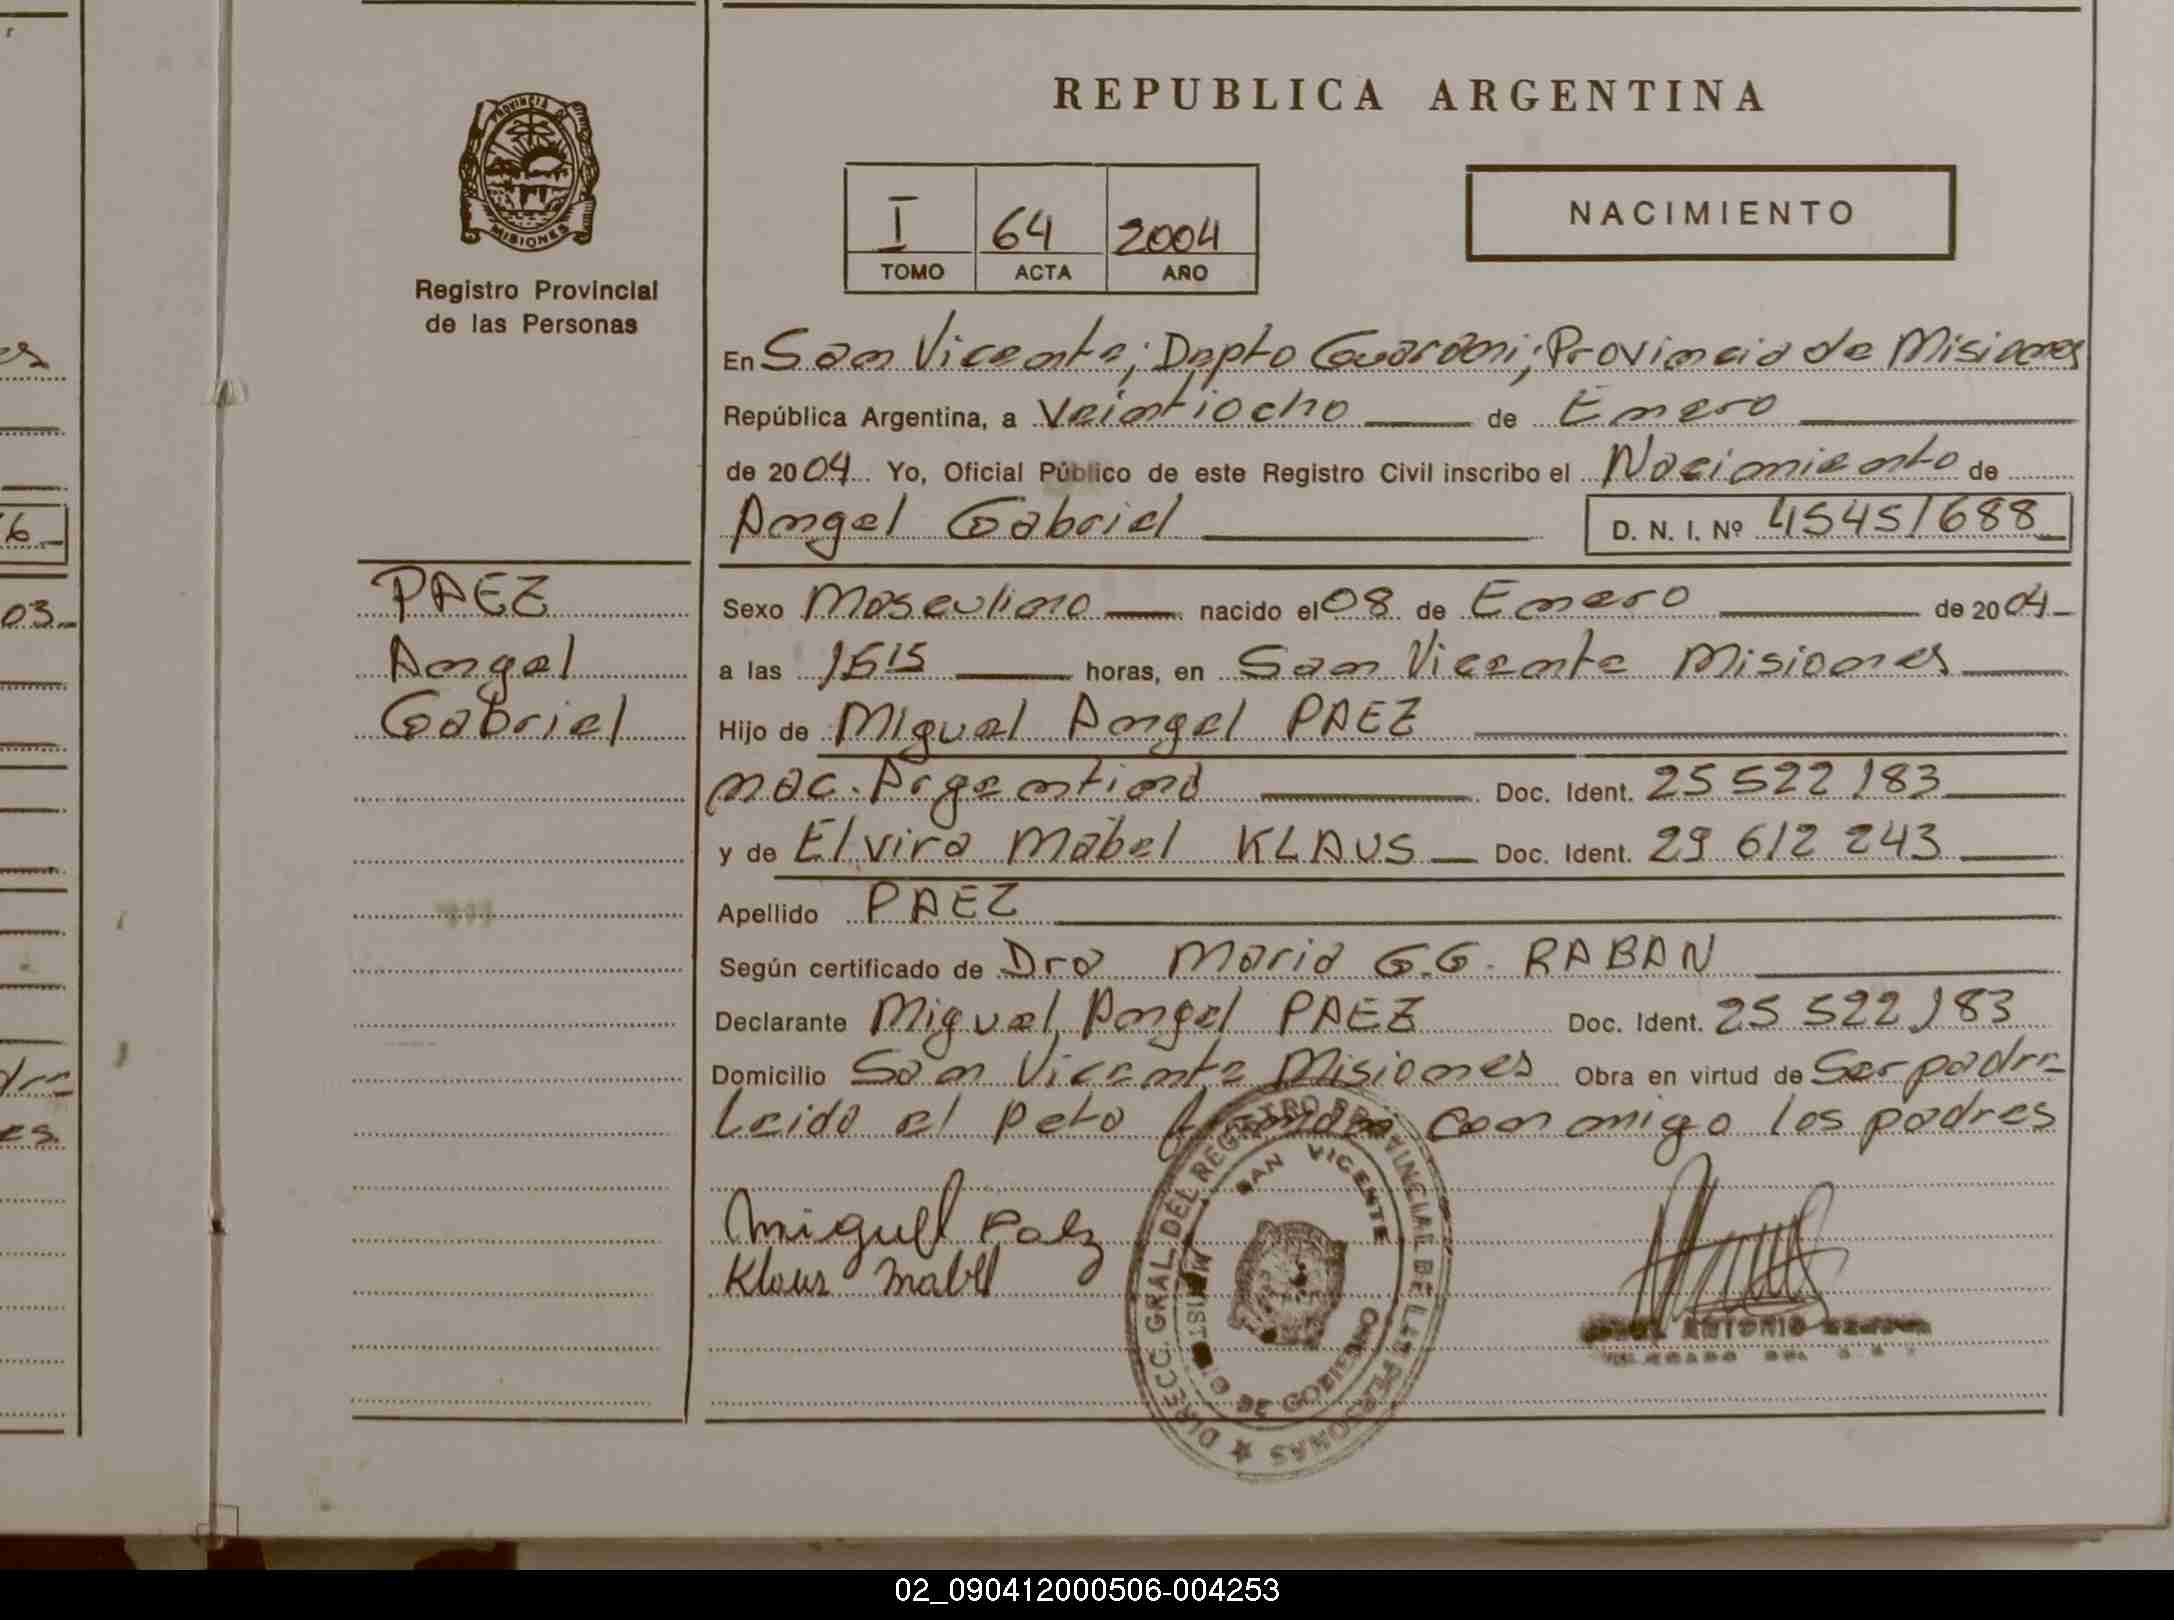 REPUBLICA ARGENTINA
PROVINCIA DE
MISIONES
Registro Provincial
de las Personas
I 64 2004
TOMO ACTA AÑO
NACIMIENTO
En San Vicente; Dpto Guarani; Provincia de Misiones
República Argentina, a Veintiocho de Enero
de 2004 Yo, Oficial Público de este Registro Civil inscribo el Nacimiento de
Angel Gabriel D. N. I. Nº 45451688
PAEZ
Angel
Gabriel
Sexo Masculino nacido el 08 de Enero de 2004
a las 1615 horas, en San Vicente Misiones
Hijo de Miguel Angel PAEZ
nac. Argentina Doc. Ident. 25 522 183
y de Elvira Mabel KLAUS Doc. Ident. 29 612 243
Apellido PAEZ
Según certificado de Dra Maria G.G. RABAN
Declarante Miguel Angel PAEZ Doc. Ident. 25 522 183
Domicilio San Vicente Misiones Obra en virtud de Ser padre
Leida el Acta firman conmigo los padres
Miguel Paez
Klaus Mabel
DIRECC. GRAL. DEL REGISTRO PROVINCIAL DE LAS PERSONAS
SAN VICENTE
MINIST. DE GOBIERNO
ANTONIO
es
6
03
dre
es
02_090412000506-004253